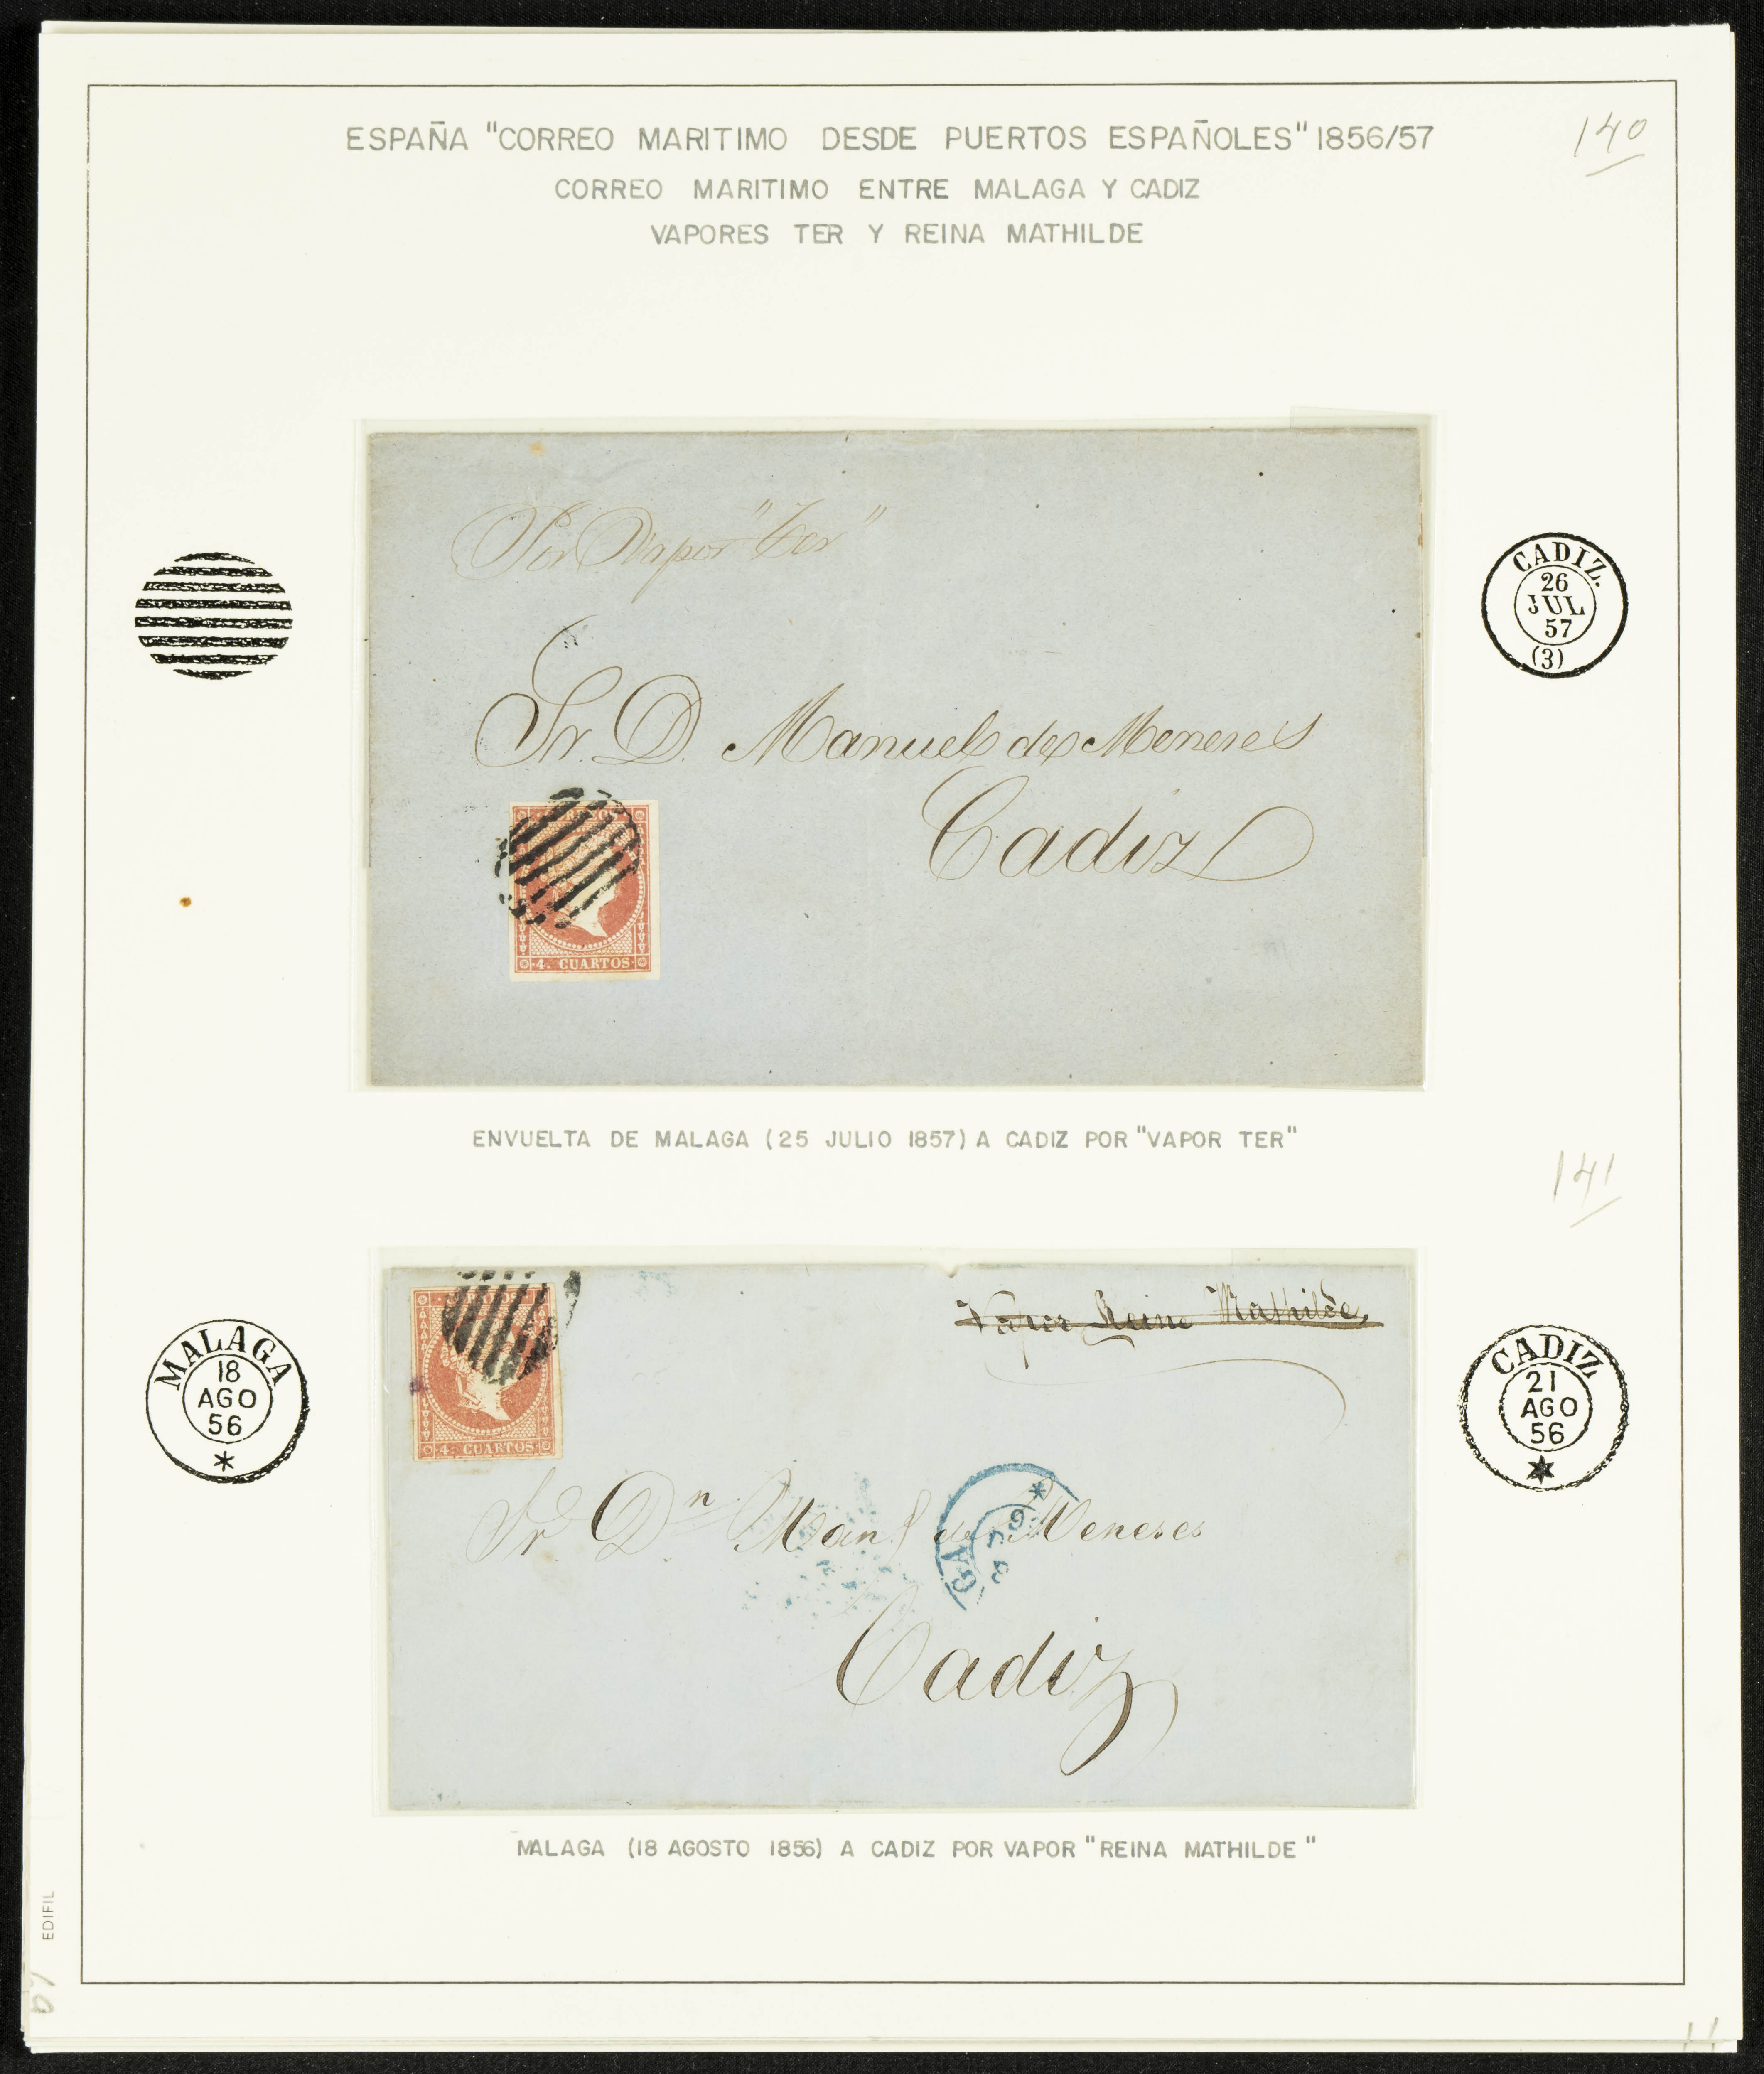 ESPAÑA "CORREO MARITIMO DESDE PUERTOS ESPAÑOLES" 1856/57
140
CORREO MARITIMO ENTRE MALAGA Y CADIZ
VAPORES TER Y REINA MATHILDE
Por Vapor "Ter"
CADIZ.
26
JUL
57
(3)
Sr. D. Manuel de Meneses
Cadiz
4. CUARTOS
ENVUELTA DE MALAGA (25 JULIO 1857) A CADIZ POR "VAPOR TER"
141
Vapor Reina Mathilde
MALAGA
18
AGO
56
*
CADIZ
21
AGO
56
4. CUARTOS
GA
Sr Dn Manl de Meneses
Cadiz
MALAGA (18 AGOSTO 1856) A CADIZ POR VAPOR "REINA MATHILDE"
EDIFIL